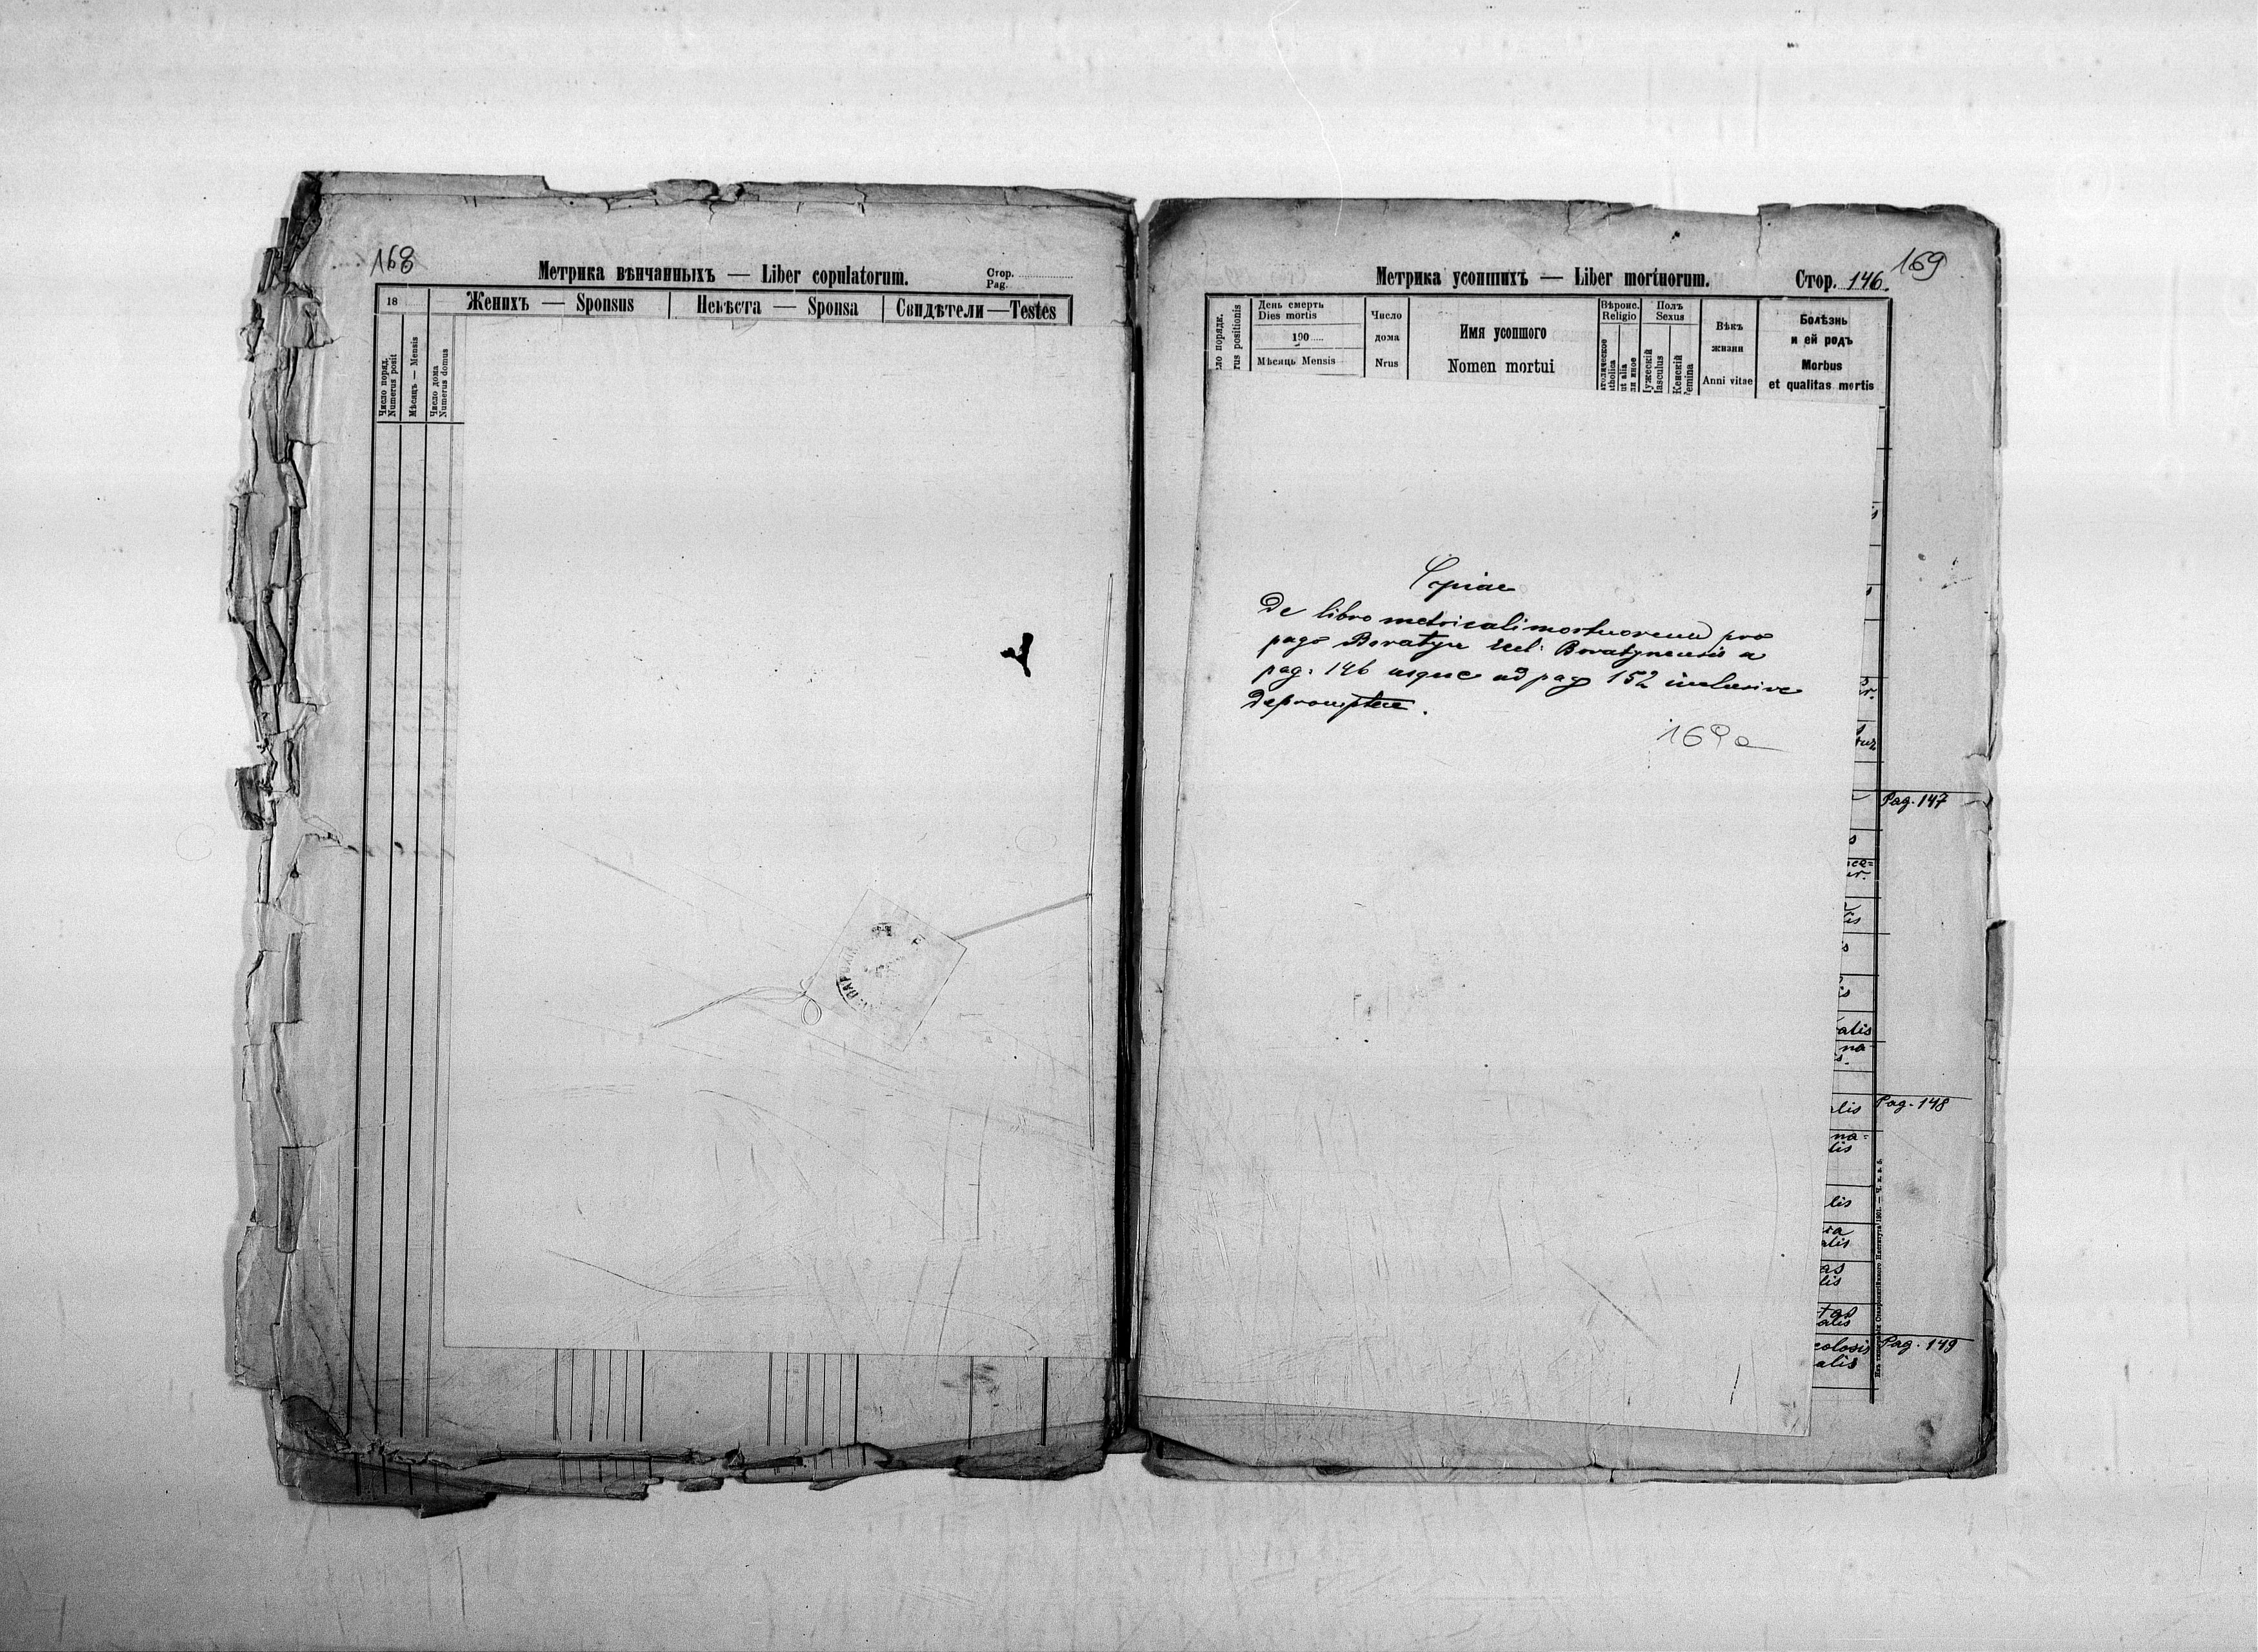 168
Метрика вѣнчанныхъ — Liber copulatorum.
Стор.
Pag.
18
Женихъ — Sponsus
Невѣста — Sponsa
Свидѣтели — Testes
Число поряд.
Numerus posit
Мѣсяць — Mensis
Число дома
Numerus domus
169
Метрика усопшихъ — Liber mortuorum.
Стор. 146.
ло порядк.
rus positionis
День смерть
Dies mortis
190
Мѣсяць Mensis
Число
дома
Nrus
Имя усопшого
Nomen mortui
Вѣроис.
Religio
Полъ
Sexus
Вѣкъ
жизни
Anni vitae
Болѣзнь
и ей родъ
Morbus
et qualitas mortis
Copiae
De libro metricali mortuorum pro
pago Boratyn Eccl: Boratynensis a
pag. 146 usque ad pag 152 inclusive
depromptae.
169a
Pag. 147
Pag. 148
Pag. 149